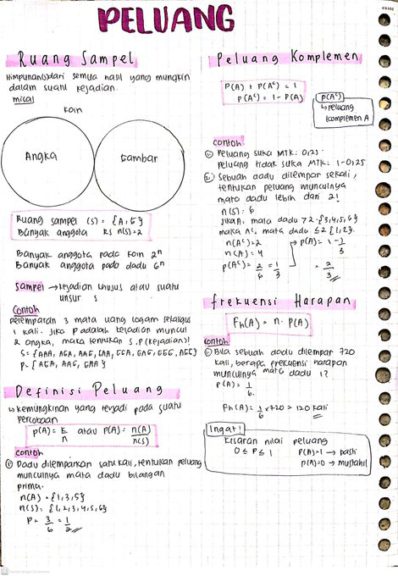 PELUANG
Ruang Sampel
Himpunan dari semua hasil yang mungkin
dalam suatu kejadian.
misal
Koin
Angka
Gambar
Ruang sampel (S) = {A, G}
Banyak anggota RS n(S)=2
Banyak anggota pada koin 2ⁿ
Banyak anggota pada dadu 6ⁿ
Sampel → kejadian khusus atau suatu
unsur S
Contoh
pelemparan 3 mata uang logam sekaligus
1 kali. Jika P adalah kejadian muncul
2 angka, maka tentukan S, P (kejadian)!
P = {AGA, AAG, GAA}
Definisi Peluang
↳ kemungkinan yang terjadi pada suatu
percobaan
p(A) = k/n atau P(A) = n(A)/n(S)
contoh
① Dadu dilemparkan satu kali, tentukan peluang
munculnya mata dadu bilangan
prima.
n(A) = {1,3,5}
n(S) = {1,2,3,4,5,6}
P = 3/6 = 1/2
Peluang Komplemen
P(A) + P(Aᶜ) = 1
P(Aᶜ) = 1 - P(A)
P(Aᶜ)
↳ peluang
komplemen A
contoh
① Peluang suka MTK: 0,25
peluang tidak suka MTK: 1-0,25
② Sebuah dadu dilempar sekali,
tentukan peluang munculnya
mata dadu lebih dari 2!
n(S) = 6
Jika A: mata dadu >2 = {3,4,5,6}
maka Aᶜ: mata dadu ≤2 {1,2}
n(Aᶜ)=2
n(A) = 4
P(Aᶜ) = 2/6 = 1/3
→ P(A) = 1 - 1/3
= 2/3
Frekuensi Harapan
Fₕ(A) = n · P(A)
contoh
① Bila sebuah dadu dilempar 720
kali, berapa frekuensi harapan
munculnya mata dadu 1?
P(A) = 1/6
Fₕ(A) = 1/6 × 720 = 120 kali
Ingat!
kisaran nilai peluang
0 ≤ P ≤ 1
P(A)=1 → pasti
P(A)=0 → mustahil